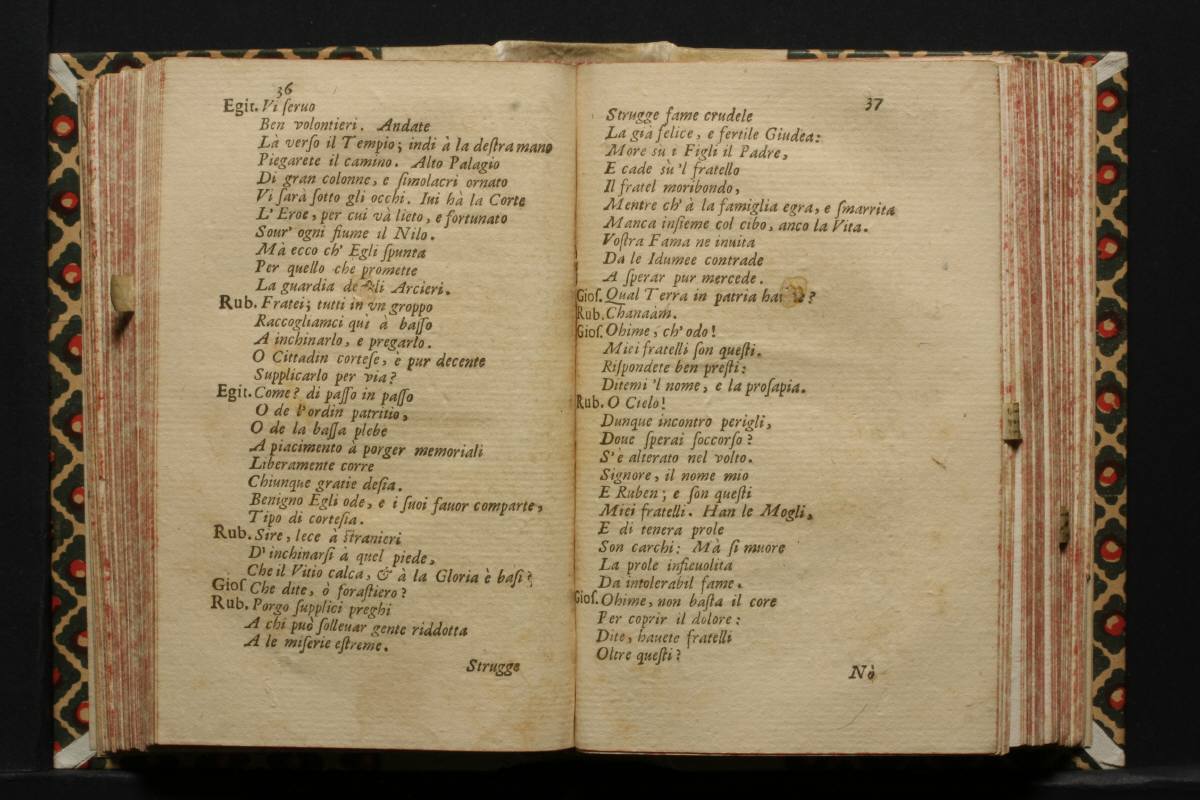 36
Egit. Vi ſeruo
Ben volontieri. Andate
Là verſo il Tempio; indi à la deſtra mano
Piegarete il camino. Alto Palagio
Di gran colonne, e ſimolacri ornato
Vi ſarà ſotto gli occhi. Iui hà la Corte
L'Eroe, per cui và lieto, e fortunato
Sour' ogni fiume il Nilo.
Mà ecco ch' Egli ſpunta
Per quello che promette
La guardia de Arcieri.
Rub. Fratei; tutti in vn groppo
Raccogliamci quì à baſſo
A inchinarlo, e pregarlo.
O Cittadin corteſe, è pur decente
Supplicarlo per via?
Egit. Come? di paſſo in paſſo
O de l'ordin patritio,
O de la baſſa plebe
A piacimento à porger memoriali
Liberamente corre
Chiunque gratie deſia.
Benigno Egli ode, e i ſuoi fauor comparte,
Tipo di corteſia.
Rub. Sire, lece à ſtranieri
D'inchinarſi à quel piede,
Che il Vitio calca, & à la Gloria è baſi?
Gioſ Che dite, ò foraſtiero?
Rub. Porgo ſupplici preghi
A chi può ſolleuar gente riddotta
A le miſerie eſtreme.
Strugge
37
Strugge fame crudele
La già felice, e fertile Giudea:
More sù i Figli il Padre,
E cade sù 'l fratello
Il fratel moribondo,
Mentre ch' à la famiglia egra, e ſmarrita
Manca inſieme col cibo, anco la Vita.
Voſtra Fama ne inuita
Da le Idumee contrade
A ſperar pur mercede.
Gioſ. Qual Terra in patria hai ?
Rub. Chanaam.
Gioſ. Ohime, ch' odo!
Miei fratelli ſon queſti.
Riſpondete ben preſti:
Ditemi 'l nome, e la proſapia.
Rub. O Cielo!
Dunque incontro perigli,
Doue ſperai ſoccorſo?
S'è alterato nel volto.
Signore, il nome mio
E Ruben; e ſon queſti
Miei fratelli. Han le Mogli,
E di tenera prole
Son carchi: Mà ſi muore
La prole inſieuolita
Da intolerabil fame.
Gioſ. Ohime, non baſta il core
Per coprir il dolore:
Dite, hauete fratelli
Oltre queſti?
Nò